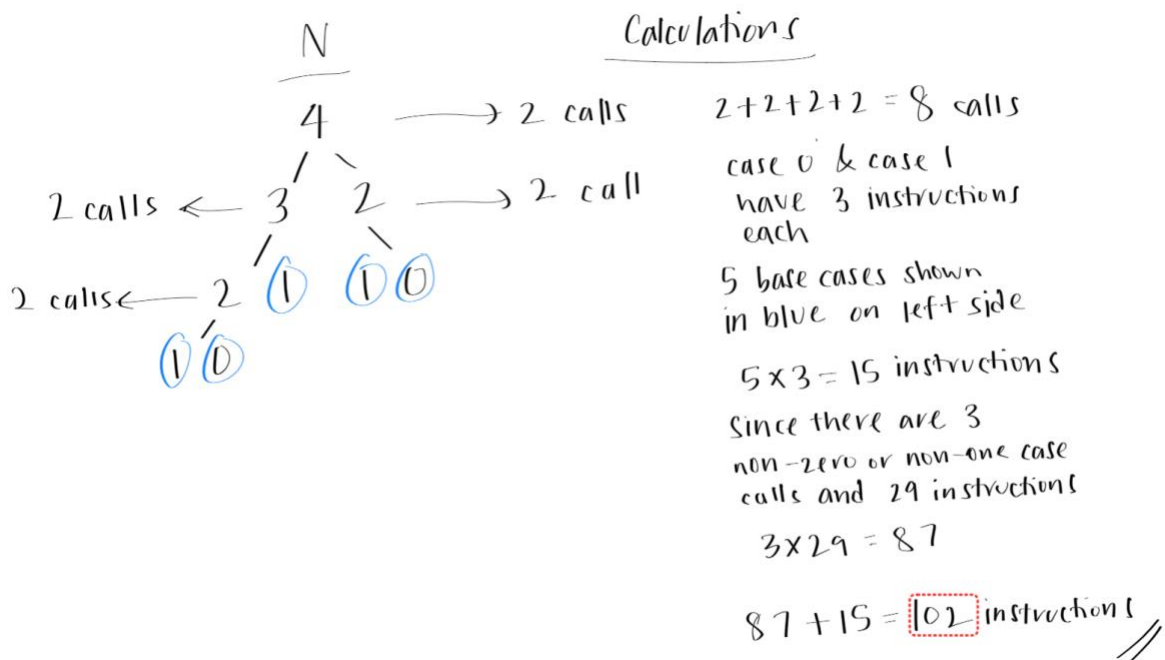 N
4 → 2 calls
2 calls ← 3 2 → 2 call
2 calls ← 2 1 1 0
1 0
Calculations
2+2+2+2 = 8 calls
case 0 & case 1
have 3 instructions
each
5 base cases shown
in blue on left side
5×3 = 15 instructions
since there are 3
non-zero or non-one case
calls and 29 instructions
3×29 = 87
87+15 = 102 instructions